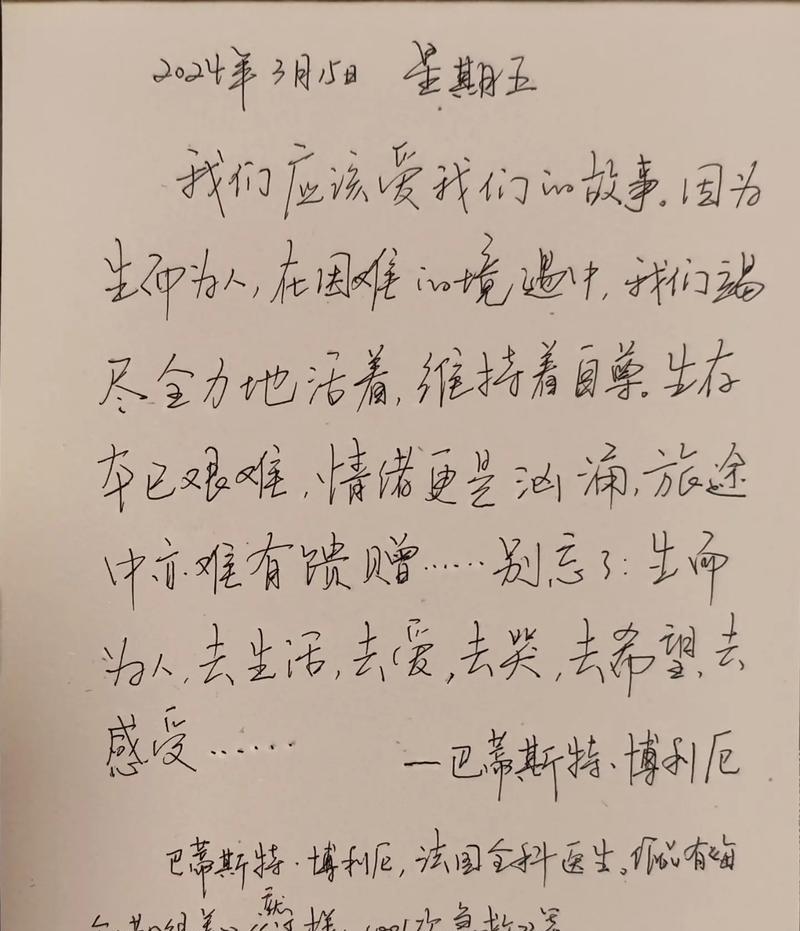 2024年3月15日 星期五
我们应该爱我们的故事。因为
生而为人,在困难的境遇中,我们竭
尽全力地活着,维持着自尊。生存
本已艰难,情绪更是汹涌,旅途
中亦难有馈赠……别忘了:生而
为人,去生活,去爱,去哭,去希望,去
感受……
—巴蒂斯特·博利厄
巴蒂斯特·博利厄,法国全科医生。作品有
就